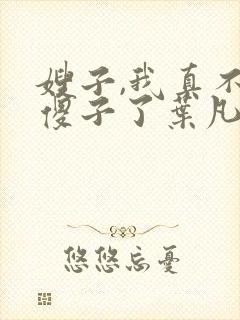 嫂子,我真不
傻子了葉凡
悠悠忘憂